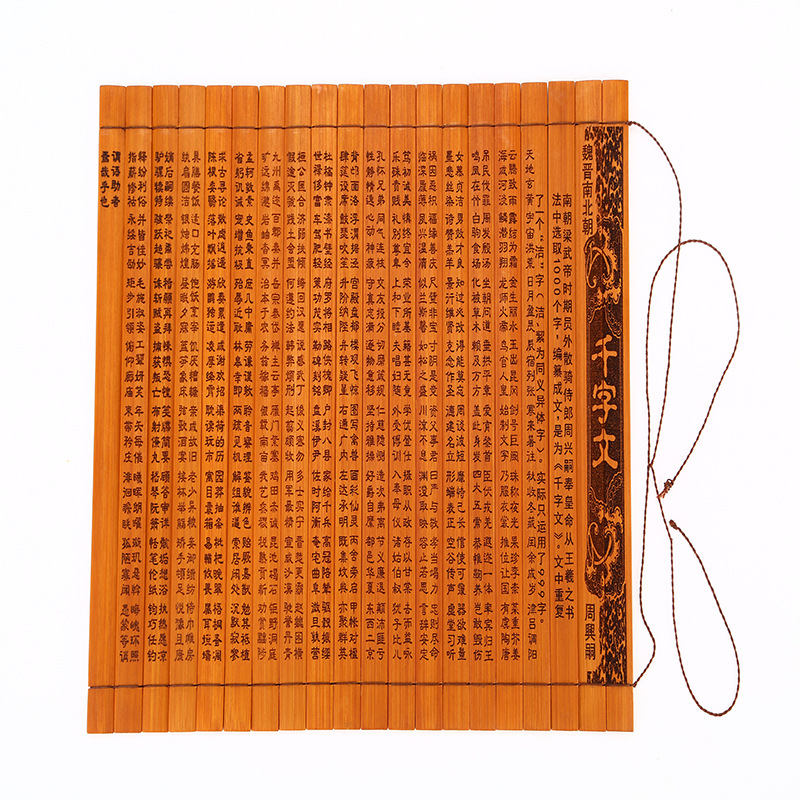 魏晋南北朝
千字文
周興嗣
南朝梁武帝时期员外散骑侍郎周兴嗣奉皇命从王羲之书
法中选取1000个字，编纂成文，是为《千字文》。文中重复
了一个“洁”字（洁、絜为同义异体字）。实际只运用了999字。
天地玄黄 宇宙洪荒 日月盈昃 辰宿列张 寒来暑往 秋收冬藏 闰余成岁 律吕调阳
云腾致雨 露结为霜 金生丽水 玉出昆冈 剑号巨阙 珠称夜光 果珍李柰 菜重芥姜
海咸河淡 鳞潜羽翔 龙师火帝 鸟官人皇 始制文字 乃服衣裳 推位让国 有虞陶唐
吊民伐罪 周发殷汤 坐朝问道 垂拱平章 爱育黎首 臣伏戎羌 遐迩一体 率宾归王
鸣凤在竹 白驹食场 化被草木 赖及万方 盖此身发 四大五常 恭惟鞠养 岂敢毁伤
女慕贞洁 男效才良 知过必改 得能莫忘 罔谈彼短 靡恃己长 信使可复 器欲难量
墨悲丝染 诗赞羔羊 景行维贤 克念作圣 德建名立 形端表正 空谷传声 虚堂习听
祸因恶积 福缘善庆 尺璧非宝 寸阴是竞 资父事君 曰严与敬 孝当竭力 忠则尽命
临深履薄 夙兴温凊 似兰斯馨 如松之盛 川流不息 渊澄取映 容止若思 言辞安定
笃初诚美 慎终宜令 荣业所基 籍甚无竟 学优登仕 摄职从政 存以甘棠 去而益咏
乐殊贵贱 礼别尊卑 上和下睦 夫唱妇随 外受傅训 入奉母仪 诸姑伯叔 犹子比儿
孔怀兄弟 同气连枝 交友投分 切磨箴规 仁慈隐恻 造次弗离 节义廉退 颠沛匪亏
性静情逸 心动神疲 守真志满 逐物意移 坚持雅操 好爵自縻 都邑华夏 东西二京
背邙面洛 浮渭据泾 宫殿盘郁 楼观飞惊 图写禽兽 画彩仙灵 丙舍旁启 甲帐对楹
肆筵设席 鼓瑟吹笙 升阶纳陛 弁转疑星 右通广内 左达承明 既集坟典 亦聚群英
杜稿钟隶 漆书壁经 府罗将相 路侠槐卿 户封八县 家给千兵 高冠陪辇 驱毂振缨
世禄侈富 车驾肥轻 策功茂实 勒碑刻铭 盘溪伊尹 佐时阿衡 奄宅曲阜 微旦孰营
桓公匡合 济弱扶倾 绮回汉惠 说感武丁 俊义密勿 多士实宁 晋楚更霸 赵魏困横
假途灭虢 践土会盟 何遵约法 韩弊烦刑 起翦颇牧 用军最精 宣威沙漠 驰誉丹青
九州禹迹 百郡秦并 岳宗泰岱 禅主云亭 雁门紫塞 鸡田赤诚 昆池碣石 钜野洞庭
旷远绵邈 岩岫杳冥 治本于农 务兹稼穑 俶载南亩 我艺黍稷 税熟贡新 劝赏黜陟
孟轲敦素 史鱼秉直 庶几中庸 劳谦谨敕 聆音察理 鉴貌辨色 贻厥嘉猷 勉其祗植
省躬讥诫 宠增抗极 殆辱近耻 林皋幸即 两疏见机 解组谁逼 索居闲处 沉默寂寥
求古寻论 散虑逍遥 欣奏累遣 戚谢欢招 渠荷的历 园莽抽条 枇杷晚翠 梧桐蚤凋
陈根委翳 落叶飘摇 游鹍独运 凌摩绛霄 耽读玩市 寓目囊箱 易輶攸畏 属耳垣墙
具膳餐饭 适口充肠 饱饫烹宰 饥厌糟糠 亲戚故旧 老少异粮 妾御绩纺 侍巾帷房
纨扇圆洁 银烛炜煌 昼眠夕寐 蓝笋象床 弦歌酒宴 接杯举觞 矫手顿足 悦豫且康
嫡后嗣续 祭祀烝尝 稽颡再拜 悚惧恐惶 笺牒简要 顾答审详 骸垢想浴 执热愿凉
驴骡犊特 骇跃超骧 诛斩贼盗 捕获叛亡 布射僚丸 嵇琴阮箫 恬笔伦纸 钧巧任钓
释纷利俗 并皆佳妙 毛施淑姿 工颦妍笑 年矢每催 曦晖朗曜 璇玑悬斡 晦魄环照
指薪修祜 永绥吉劭 矩步引领 俯仰廊庙 束带矜庄 徘徊瞻眺 孤陋寡闻 愚蒙等诮
谓语助者
焉哉乎也